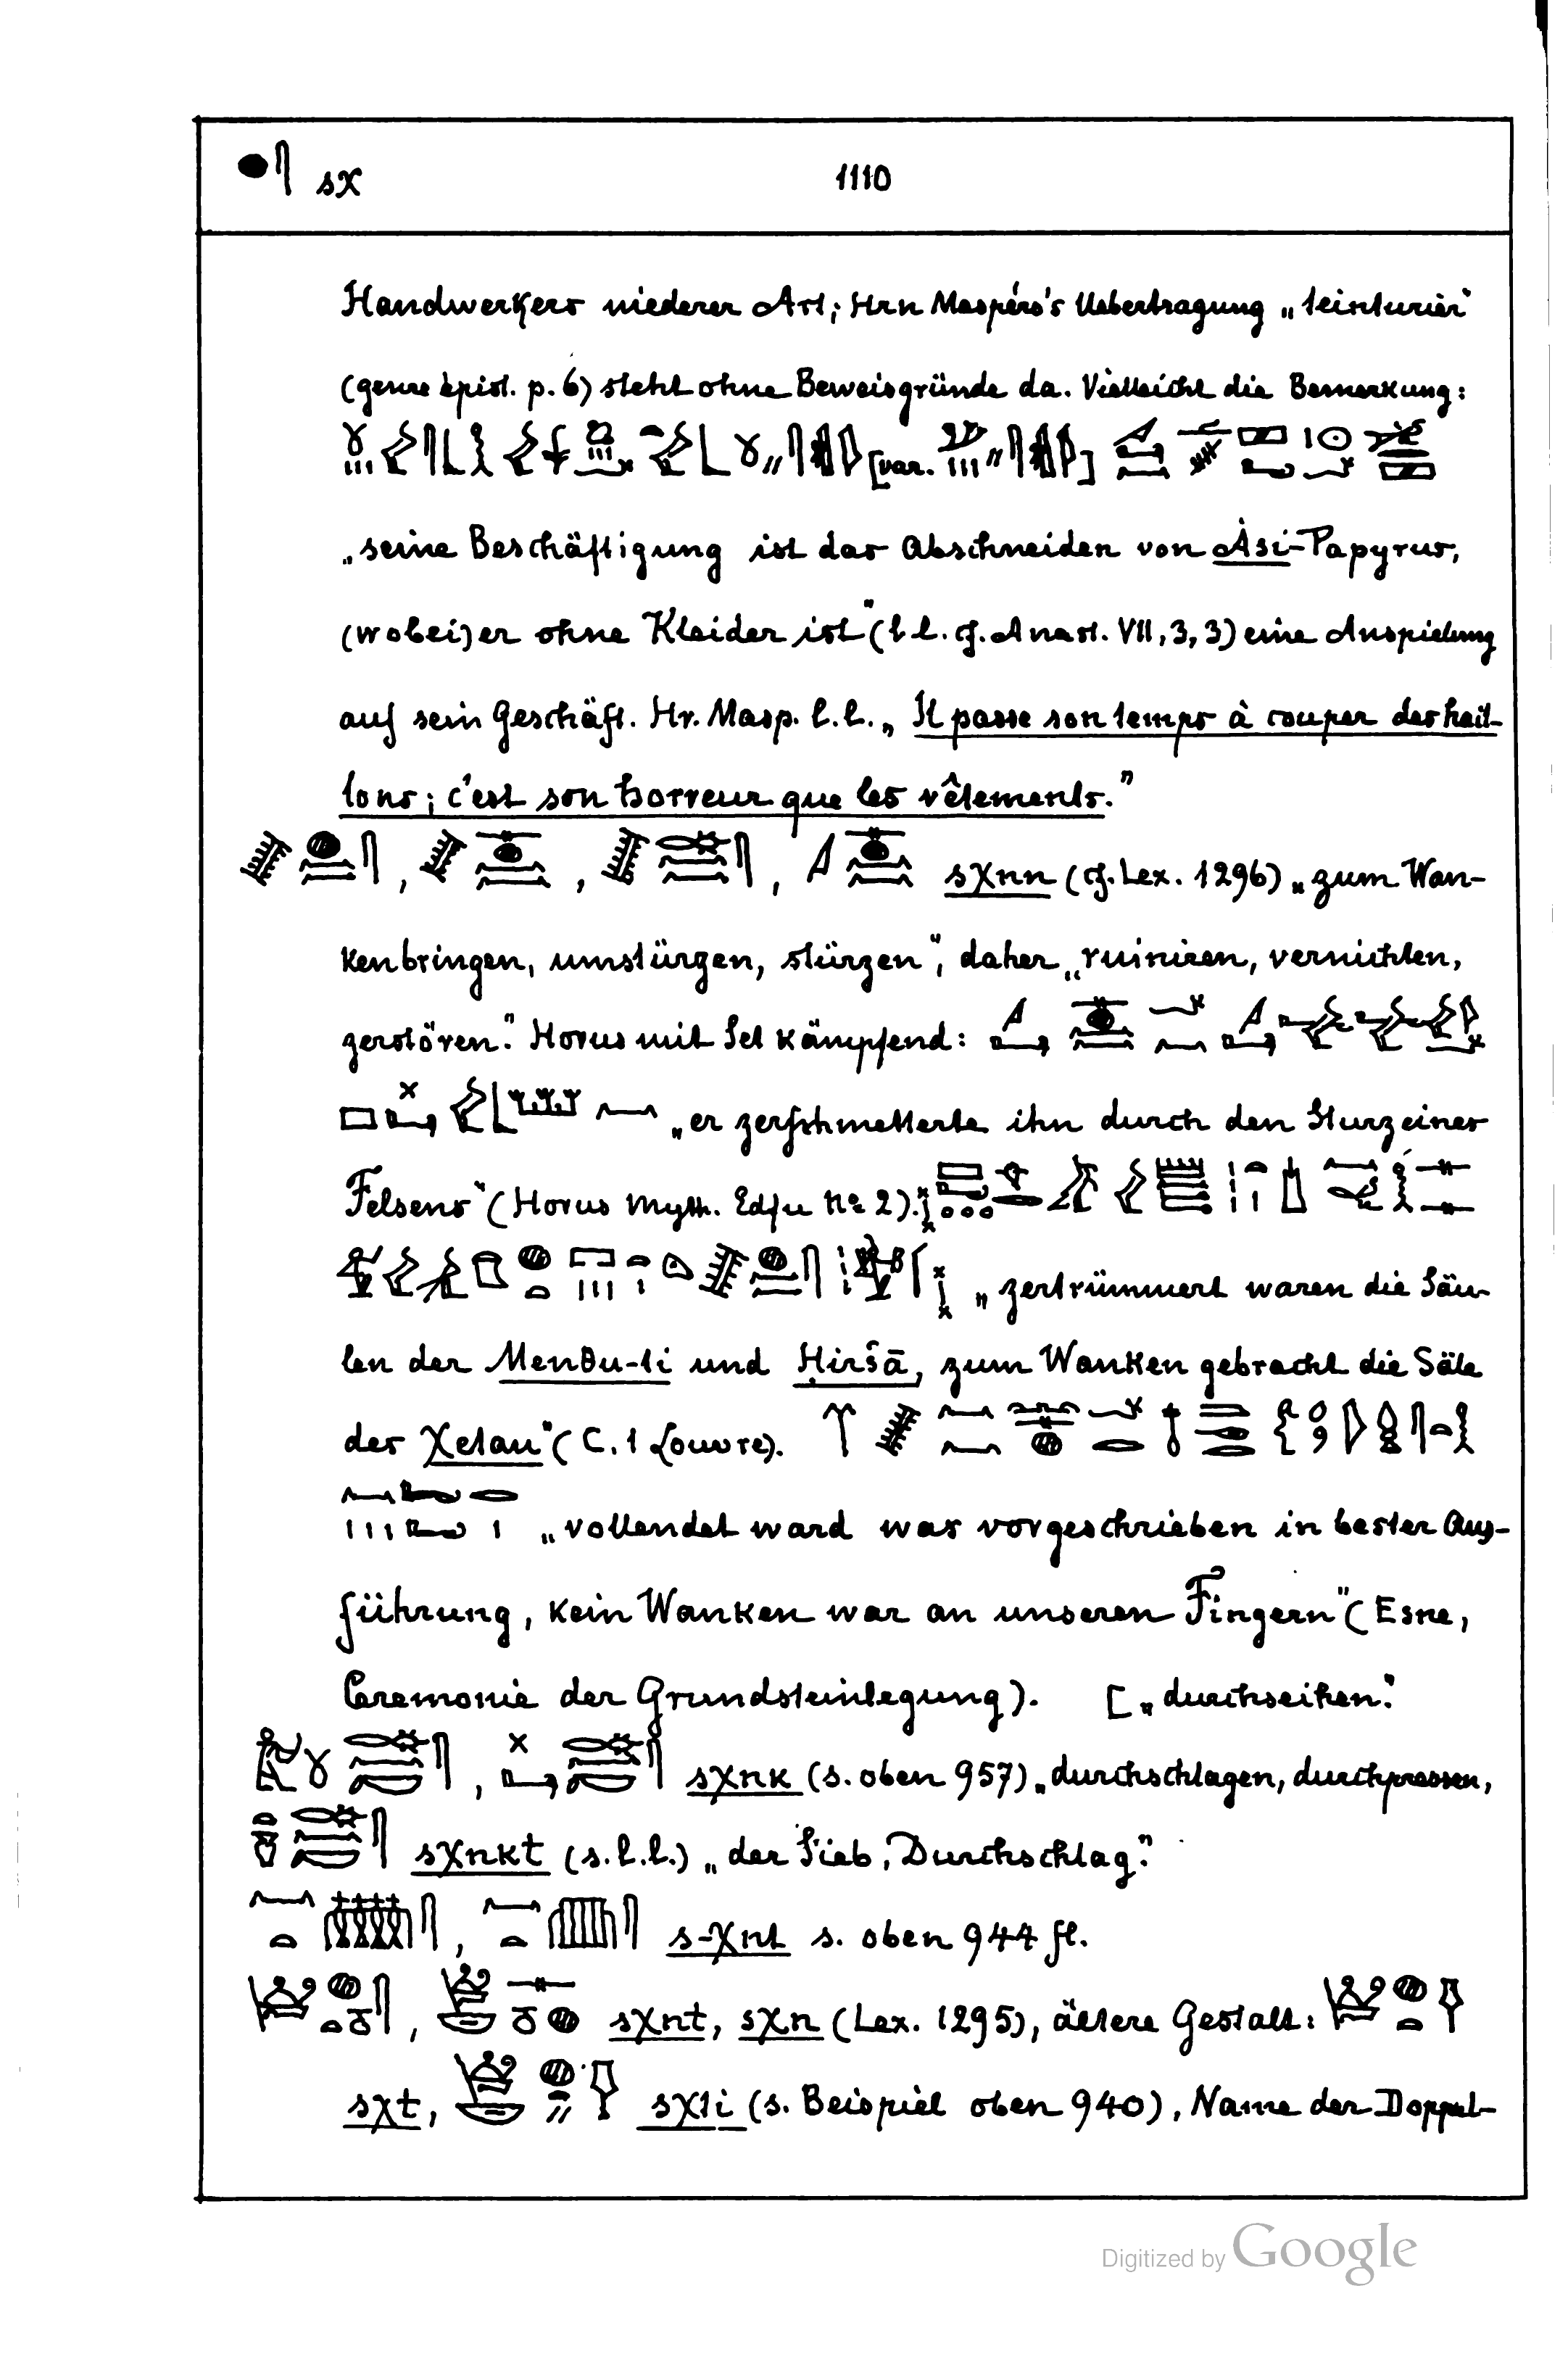 sχ 1110
Handwerkers niederer Art; Hrn Maspéro's Uebertragung „teinturier"
(genre épist. p. 6) steht ohne Beweisgründe da. Vielleicht die Bemerkung:
[var. ]
„seine Beschäftigung ist das Abschneiden von Àsi-Papyrus,
(wobei) er ohne Kleider ist" (l.l. cf. Anast. VII, 3, 3) eine Anspielung
auf sein Geschäft. Hr. Masp. l.l. „Il passe son temps à couper des hail-
lons; c'est son horreur que les vêtements."
, , , sχnn (cf. Lex. 1296) „zum Wan-
kenbringen, umstürzen, stürzen", daher „ruiniren, vernichten,
zerstören." Horus mit Set kämpfend:
„er zerschmetterte ihn durch den Sturz eines
Felsens" (Horus Myth. Edfu No 2).
„zertrümmert waren die Säu-
len der Menθu-ti und Ḥiršā, zum Wanken gebracht die Säle
der χetau" (C. 1 Louvre).
„vollendet ward was vorgeschrieben in bester Aus-
führung, kein Wanken war an unseren Fingern" (Esne,
Ceremonie der Grundsteinlegung). [„durchseihen."
, sχnk (s. oben 957) „durchschlagen, durchpressen,
sχnkt (s. l.l.) „der Sieb, Durchschlag."
, s-χnt s. oben 944 fl.
, sχnt, sχn (Lex. 1295), ältere Gestalt:
sχt, sχti (s. Beispiel oben 940), Name der Doppel-
Digitized by Google